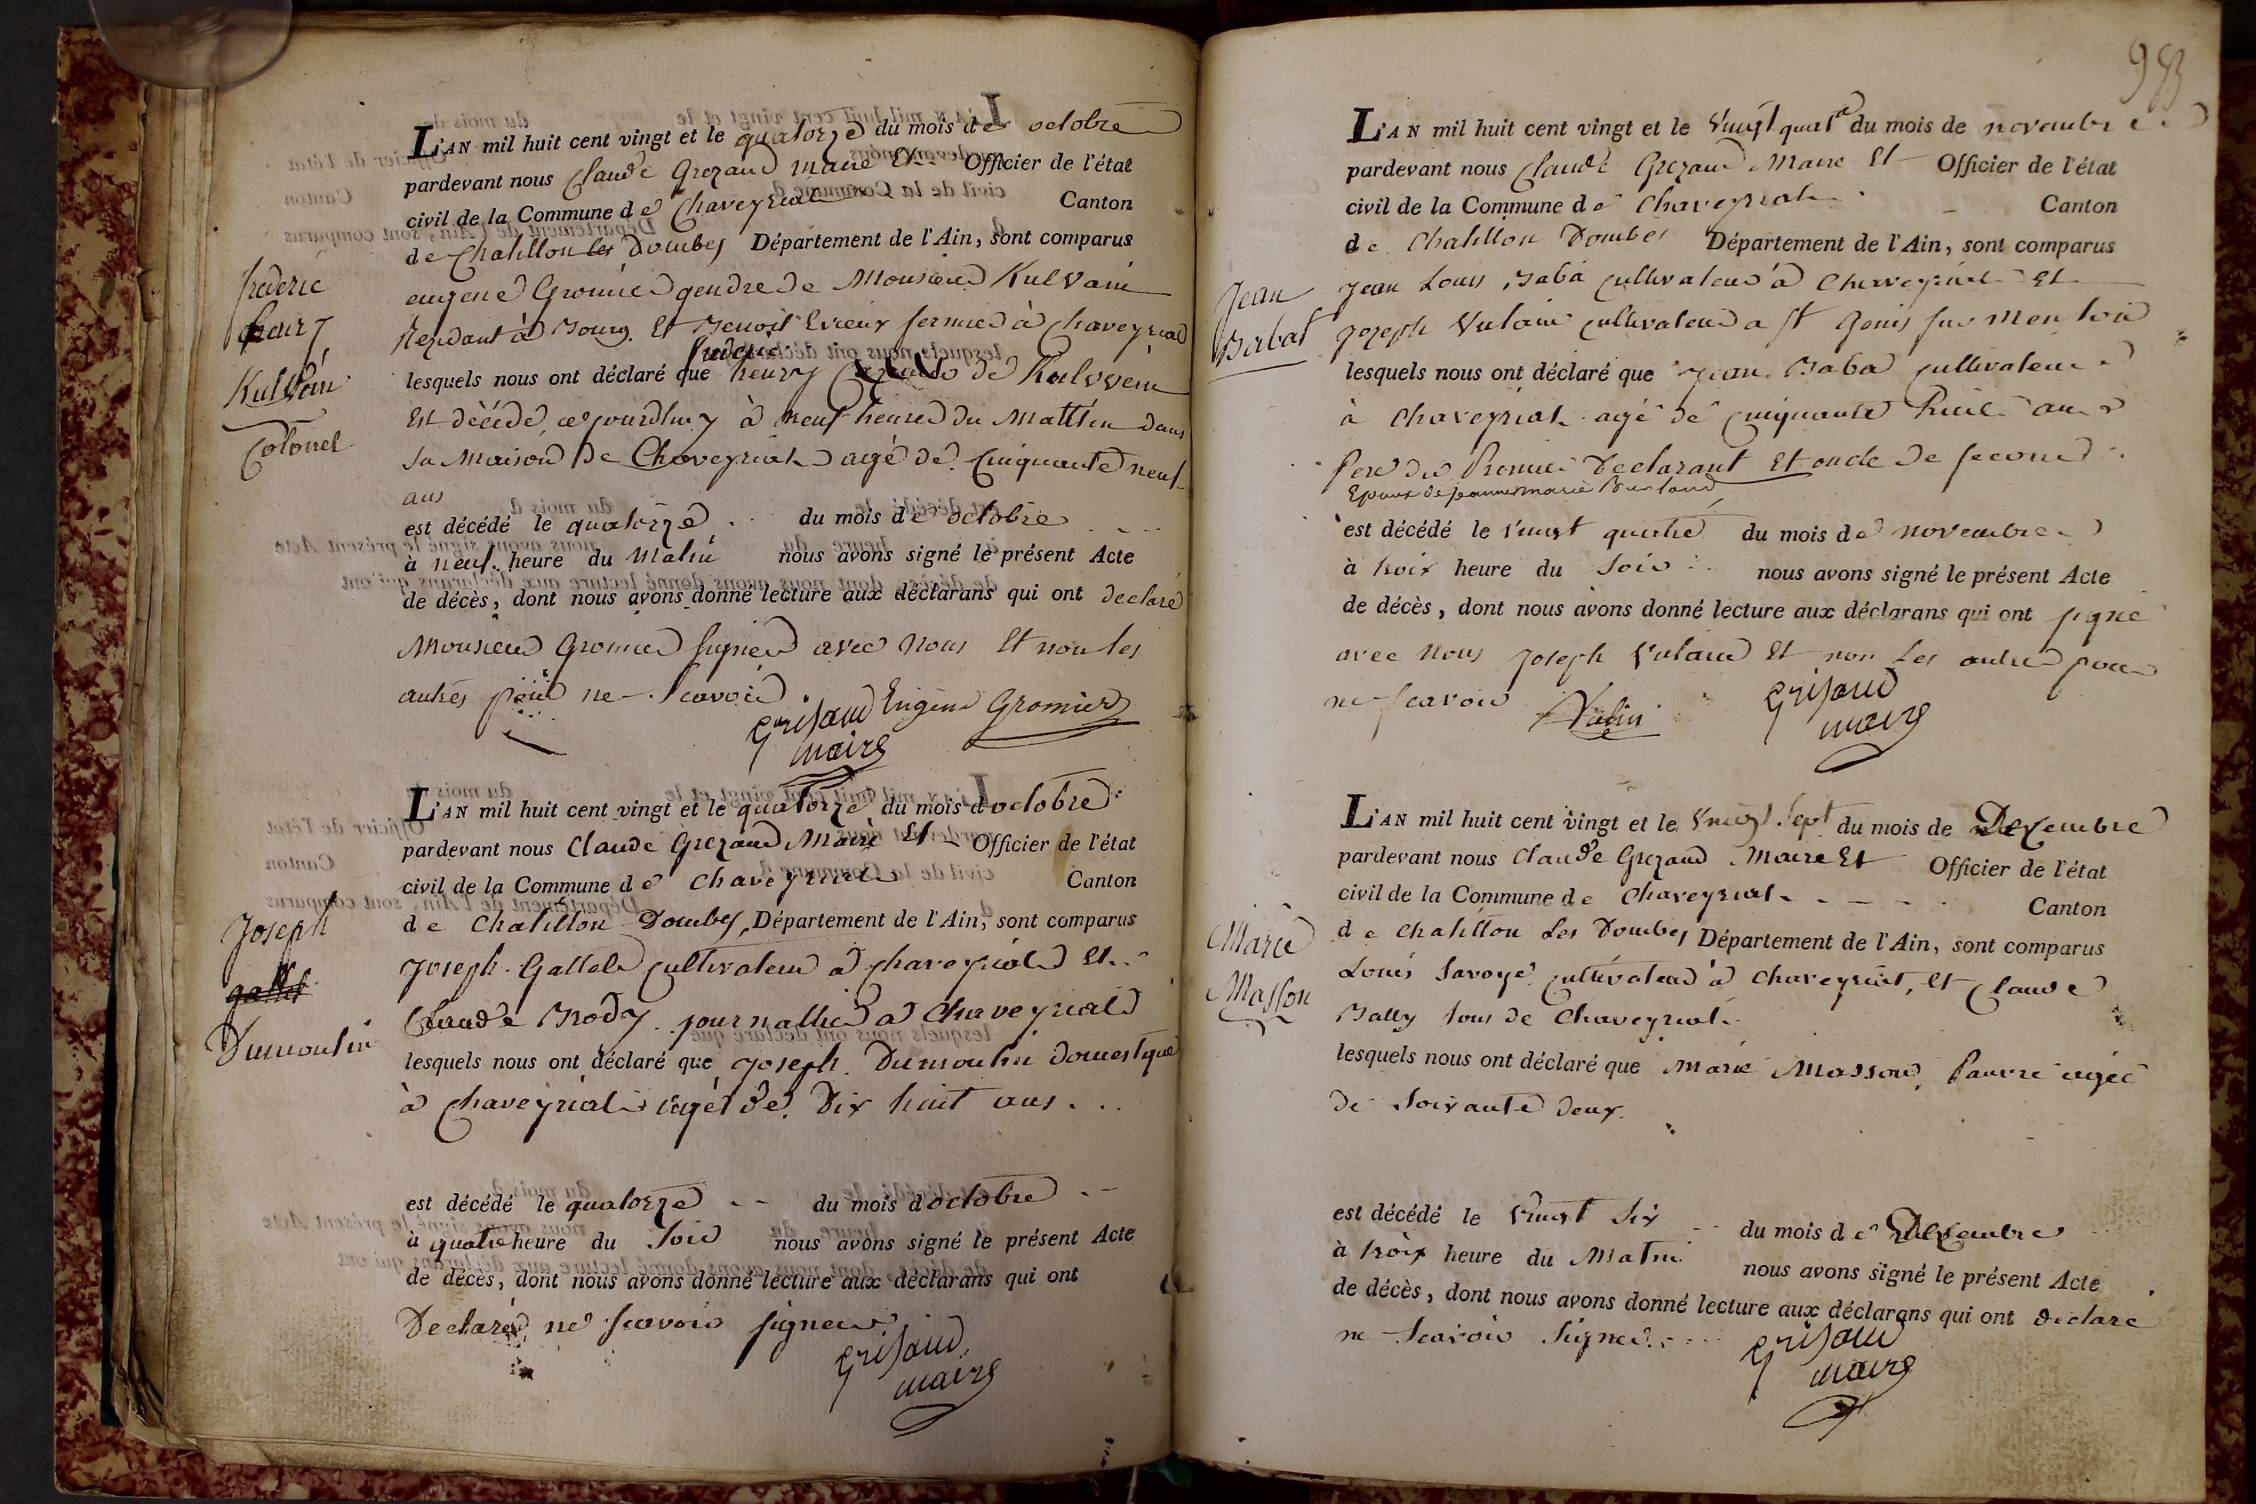 L'AN mil huit cent vingt et le quatorze du mois de octobre
pardevant nous Claude Grezaud maire Et Officier de l'état
civil de la Commune de Chaveyriat Canton
de Chatillon les Dombes Département de l'Ain, sont comparus
frederic
henry
Kulvein
Colonel
eugene Gromier gendre de Monsieur Kulvain
Rezdant à Bourg Et Benoit Evieux fermier à Chaveyriat
frederic
lesquels nous ont déclaré que henry de Kulvvein
Est décédé cejourdhuy à neuf heure du Mattin dans
sa Maison de Chaveyriat agé de Cinquante neuf
ans
est décédé le quatorze du mois de octobre
à neuf heure du Matin nous avons signé le présent Acte
de décès, dont nous avons donné lecture aux déclarans qui ont declaré
Monsieur Gromier signer avec nous Et non les
autres pour ne scavoir
Grisaud Eugène Gromier
maire
L'AN mil huit cent vingt et le quatorze du mois d octobre
pardevant nous Claude Grezaud Maire Et Officier de l'état
civil de la Commune de Chaveyriat Canton
de Chatillon Dombes, Département de l'Ain, sont comparus
Joseph
gallet
Dumoulin
Joseph Gallet cultivateur à chaveyriat Et
Claude Brody journallier a Chaveyriat
lesquels nous ont déclaré que Joseph Dumoulin domestque
à Chaveyriat agét de Dix huit ans
est décédé le quatorze du mois d octobre
à quatre heure du Soir nous avons signé le présent Acte
de décès, dont nous avons donné lecture aux déclarans qui ont
Declaré ne scavoir signer
Grisaud
maire
983
L'AN mil huit cent vingt et le Vingt quatre du mois de novembre
pardevant nous Claude Grezaud Maire Et Officier de l'état
civil de la Commune de Chaveyriat Canton
de Chatillon Dombes Département de l'Ain, sont comparus
Jean
Babat
Jean Louis Baba cultivateur à Chaveyriat Et
Joseph Vulain cultivateur a St Genis sur Menton
lesquels nous ont déclaré que Jean Baba cultivateur
à Chaveyriat agé de Cinquante huit ans
pere du Premier Declarant Et oncle de second
Epoux de jeanne marie
est décédé le vingt quatre du mois de novembre
à troix heure du Soir nous avons signé le présent Acte
de décès, dont nous avons donné lecture aux déclarans qui ont signé
avec nous Joseph Vulain Et non les autre pour
ne scavoir Vulin Grisaud
maire
L'AN mil huit cent vingt et le Vingt Sept du mois de Dexembre
pardevant nous Claude Grezaud Maire Et Officier de l'état
civil de la Commune de Chaveyriat Canton
de Chatillon Les Dombes Département de l'Ain, sont comparus
Marie
Masson
Louis Savoye cultivateur à Chaveyriat, Et Claude
Bally tous de Chaveyriat
lesquels nous ont déclaré que Marie Masson, Pauvre agée
de Soixante deux
est décédé le Vingt Six du mois de Dexembre
à troix heure du Matin nous avons signé le présent Acte
de décès, dont nous avons donné lecture aux déclarans qui ont declaré
ne Scavoir Signer
Grisaud
maire